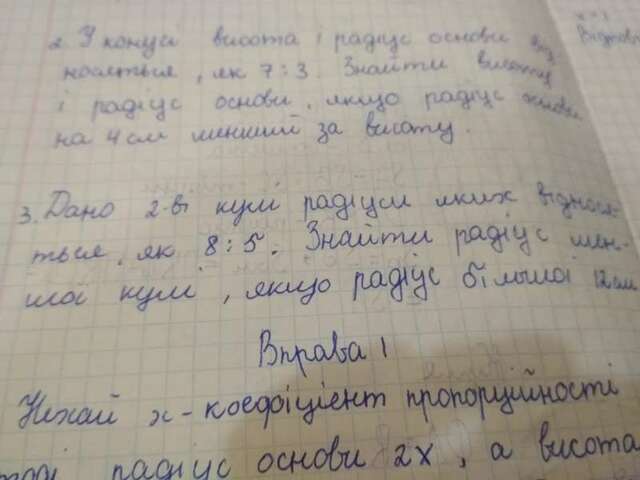 2. У конусі висота і радіус основи від
носяться, як 7:3. Знайти висоту
і радіус основи, якщо радіус основи
на 4 см менший за висоту.
3. Дано 2-ві кулі радіуси яких віднося-
ться, як 8:5. Знайти радіус мен-
шої кулі, якщо радіус більшої 12 см
Вправа 1
Нехай x - коефіцієнт пропорційності
тоді радіус основи 2x, а висота